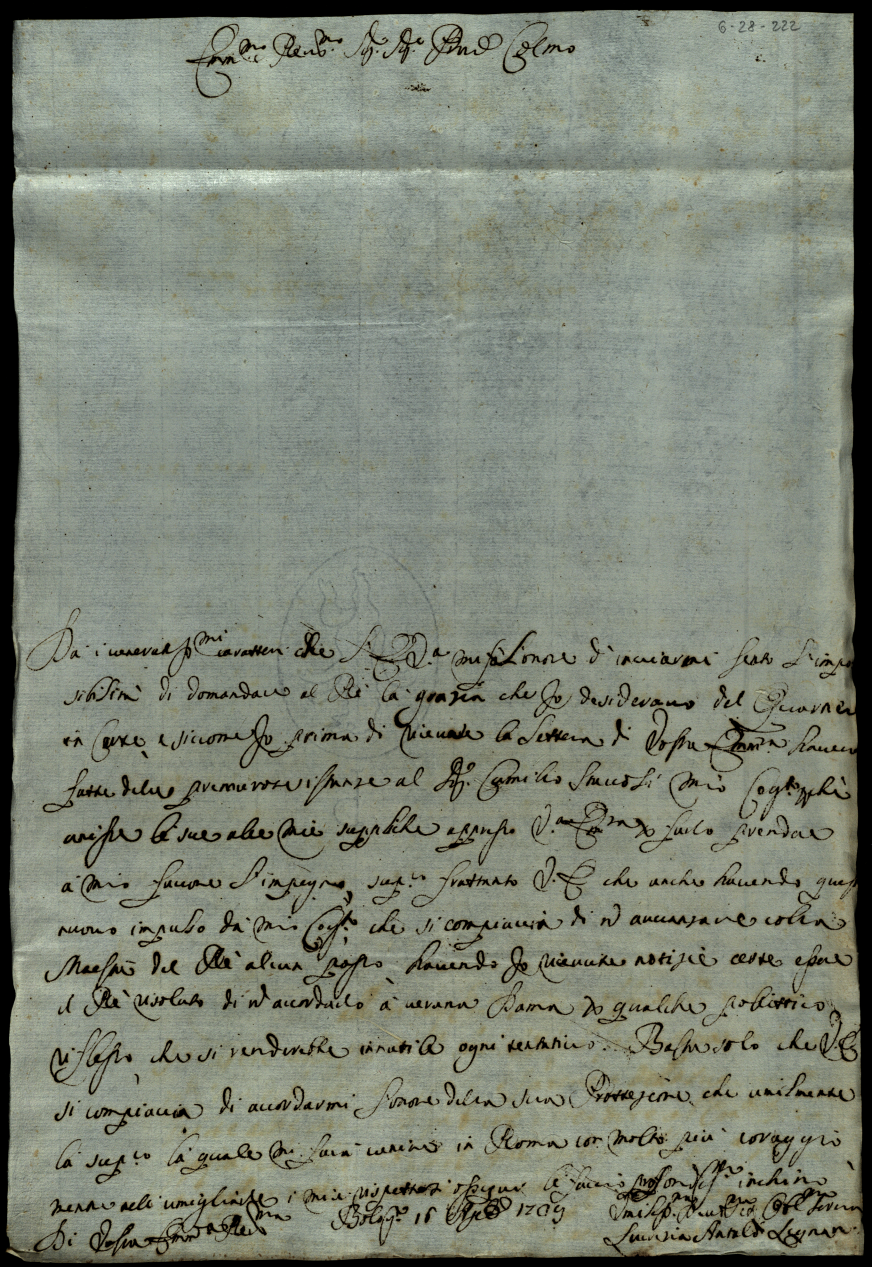 6-28-222
Emm.mo Reu.mo Sig. Sig.e Pne Colmo
Da i venerati.mi caratteri che V.E. mi fà l'onore d'inuiarmi sento l'impo
sibilità di domandare al Rè la grazia che Jo desiderauo del Quartier
in Corte, e sicome Jo prima di riceuere la lettera di Vostra Emza haueuo
fatte delle premurose istanze al Sig. Camillo mio Cog.to perchè
unisse le sue alle mie suppliche appresso V.a Emza per farlo prendere
à mio fauore l'impegno, sup.co frattanto V.E. che anche hauendo quest
nuouo impulso da mio Cog.to che si compiaccia di nõ auuanzare colla
Maestà del Rè alcun passo, hauendo Jo riceuute notizie certe essere
il Rè risoluto di nõ acordarlo à veruna Dama per qualche pollittico
riflesso che si renderebbe innutile ogni tentatiuo. Basta solo che V.E.
si compiaccia di acordarmi l'onore della sua Prottezione, che umilmente
la sup.co la quale mi farà venire in Roma con molto più coraggio
mentre nell'umigliarle i miei rispettosi ossequi le faccio profondis.mo inchino
Di Vostra Emza Reu.ma Bolog.a 16 1709
Lucrezia Legnani